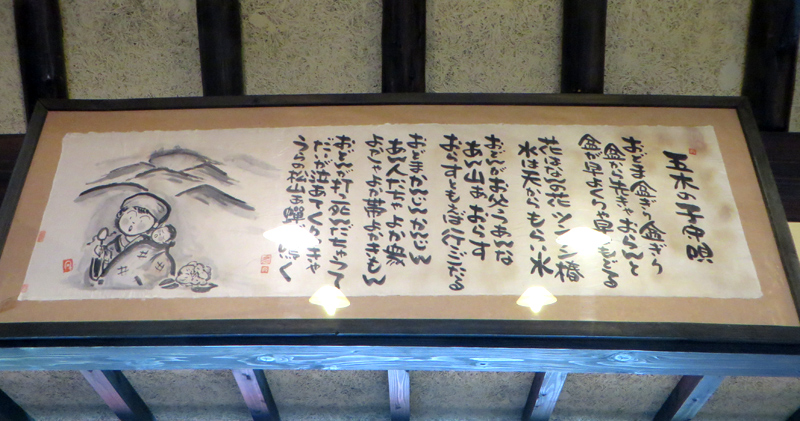 五木の子守唄
おどま盆ぎり盆ぎり
盆から先きゃおらんと
盆が早よくりゃ早よもどる
花はなんの花 ツンツン椿
水は天からもらい水
おどんがお父つあんな
あん山おらす
おらすともえば行こごたる
おどまかんじんかんじん
あん人たちゃよか衆
よかしゃよか帯よかきもん
おどんが打死んだちゅうて
だいが泣あてくりゅきゃ
うらの松山蝉が鳴く